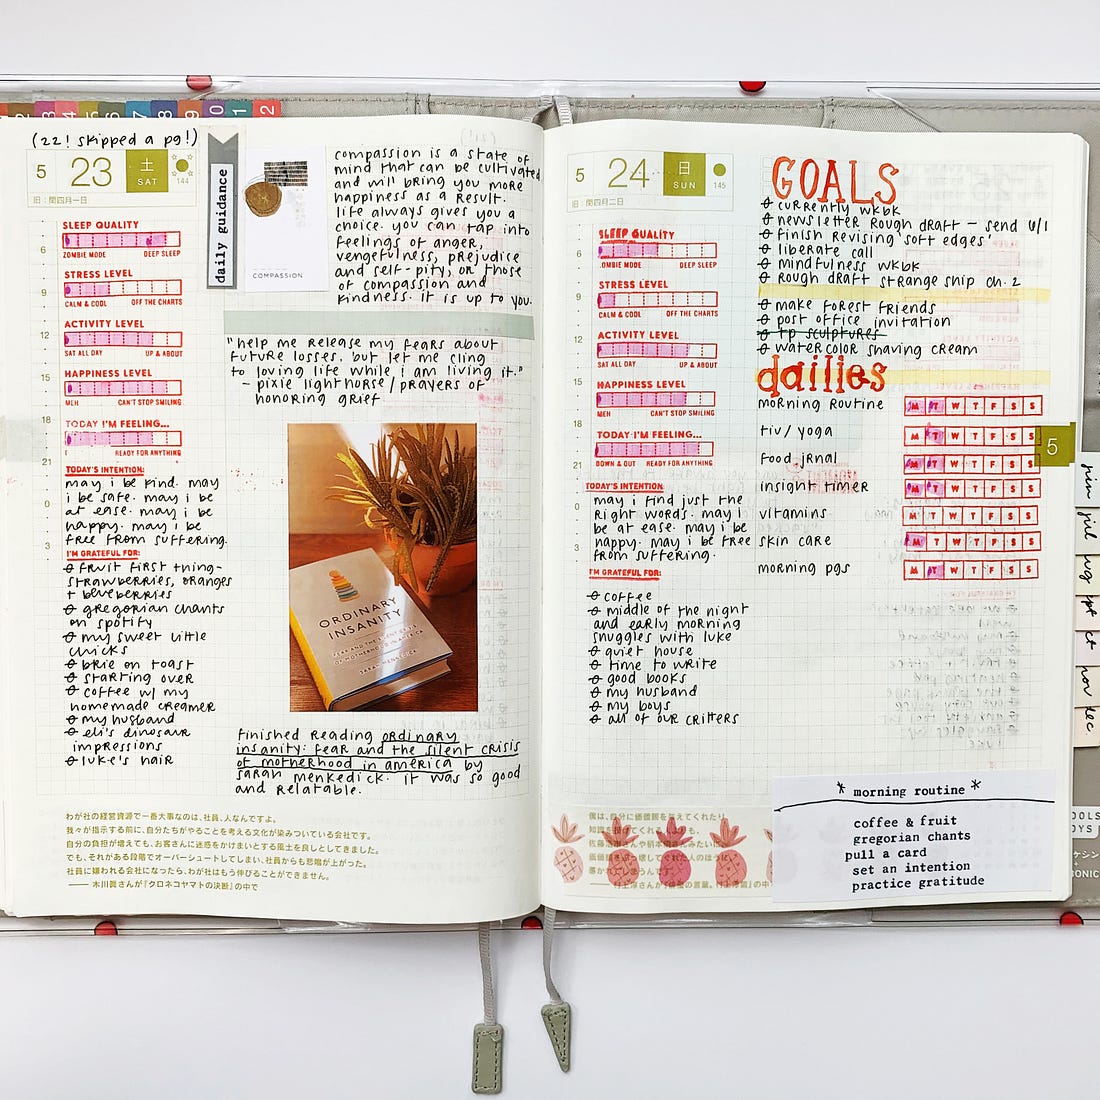 2
(22! skipped a pg!)
5
23
土
SAT
144
旧:閏四月一日
6
9
12
15
18
21
0
3
SLEEP QUALITY
ZOMBIE MODE
DEEP SLEEP
STRESS LEVEL
CALM & COOL
OFF THE CHARTS
ACTIVITY LEVEL
SAT ALL DAY
UP & ABOUT
HAPPINESS LEVEL
MEH
CAN'T STOP SMILING
TODAY I'M FEELING...
READY FOR ANYTHING
TODAY'S INTENTION:
may i be kind. may
i be safe. may i be
at ease. may i be
happy. may i be
free from suffering.
I'M GRATEFUL FOR:
fruit first thing -
strawberries, oranges
+ blueberries
gregorian chants
on spotify
my sweet little
chicks
brie on toast
starting over
coffee w/ my
homemade creamer
my husband
eli's dinosaur
impressions
luke's hair
daily guidance
COMPASSION
compassion is a state of
mind that can be cultivated
and will bring you more
happiness as a result.
life always gives you a
choice. you can tap into
feelings of anger,
vengefulness, prejudice
and self-pity, or those
of compassion and
kindness. it is up to you.
"help me release my fears about
future losses. but let me cling
to loving life while i am living it."
- pixie lighthorse / prayers of
honoring grief
ORDINARY
INSANITY
FEAR AND THE SILENT CRISIS
OF MOTHERHOOD IN AMERICA
SARAH MENKEDICK
finished reading ordinary
insanity: fear and the silent crisis
of motherhood in america by
sarah menkedick. it was so good
and relatable.
わが社の経営資源で一番大事なのは、社員、人なんですよ。
我々が指示する前に、自分たちがやることを考える文化が染みついている会社です。
自分の負担が増えても、お客さんに迷惑をかけまいとする風土を良しとしてきました。
でも、それがある段階でオーバーシュートしてしまい、社員からも悲鳴が上がった。
社員に嫌われる会社になったら、わが社はもう伸びることができません。
── 木川眞さんが『クロネコヤマトの決断』の中で
5
24
日
SUN
145
旧:閏四月二日
6
9
12
15
18
21
0
3
SLEEP QUALITY
ZOMBIE MODE
DEEP SLEEP
STRESS LEVEL
CALM & COOL
OFF THE CHARTS
ACTIVITY LEVEL
SAT ALL DAY
UP & ABOUT
HAPPINESS LEVEL
MEH
CAN'T STOP SMILING
TODAY I'M FEELING...
DOWN & OUT
READY FOR ANYTHING
TODAY'S INTENTION:
may i find just the
right words. may i
be at ease. may i be
happy. may i be free
from suffering.
I'M GRATEFUL FOR:
coffee
middle of the night
and early morning
snuggles with luke
quiet house
time to write
good books
my husband
my boys
all of our critters
GOALS
currently wkbk
newsletter rough draft - send 6/1
finish revising 'soft edges'
liberate call
mindfulness wkbk
rough draft strange snip ch. 2
make forest friends
post office invitation
tp sculptures
watercolor shaving cream
dailies
morning routine
M T W T F S S
tiv/ yoga
M T W T F S S
food jrnal
M T W T F S S
insight timer
M T W T F S S
vitamins
M T W T F S S
skin care
M T W T F S S
morning pgs
M T W T F S S
* morning routine *
coffee & fruit
gregorian chants
pull a card
set an intention
practice gratitude
5
jun
jul
aug
oct
nov
dec